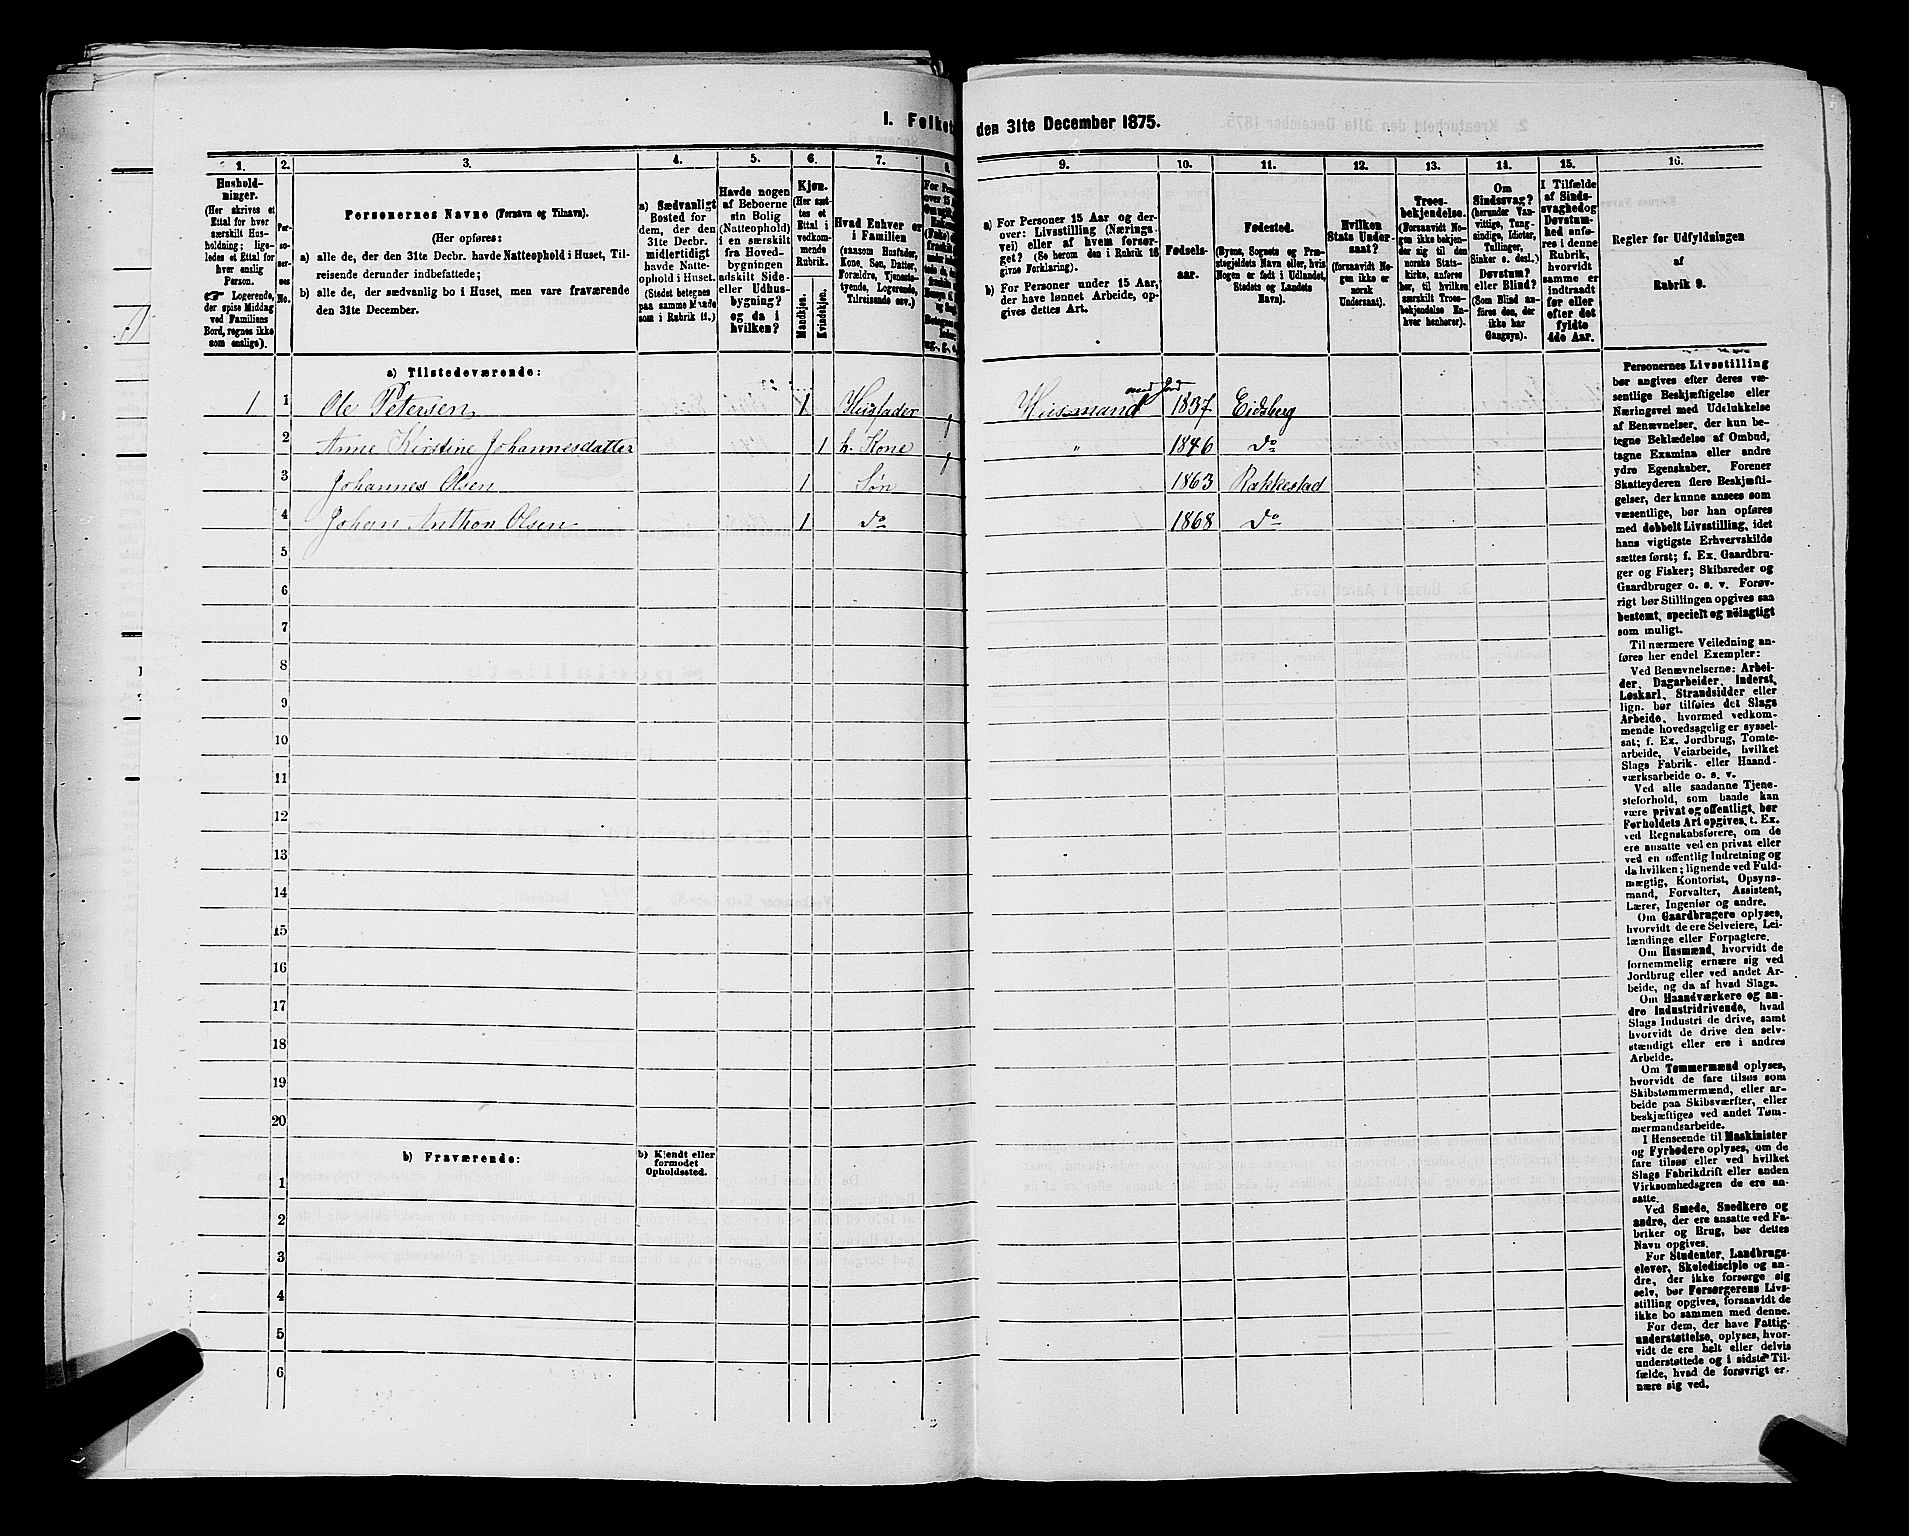 I. Folket
den 31te December 1875.
1.
2.
3.
4.
5.
6.
7.
8.
9.
10.
11.
12.
13.
14.
15.
16.
Hushold-
ninger.
(Her skrives et
Ettal for hver
særskilt Hus-
holdning; lige-
ledes et Ettal for
hver enslig
Person.
☞ Logerende,
der spise Middag
ved Familiens
Bord, regnes ikke
som enslige).
Per-
so-
ner-
nes
No.
Personernes Navne (Fornavn og Tilnavn).
(Her opføres:
a) alle de, der den 31te Decbr. havde Natteophold i Huset, Til-
reisende derunder indbefattede;
b) alle de, der sædvanlig bo i Huset, men vare fraværende
den 31te December.
a) Sædvanligt
Bosted for
dem, der den
31te Decbr.
midlertidigt
havde Natte-
ophold i Huset.
(Stedet betegnes
paa samme Maade
som i Rubrik 11.)
Havde nogen
af Beboerne
sin Bolig
(Natteophold)
i en særskilt
fra Hoved-
bygningen
adskilt Side-
eller Udhus-
bygning?
og da i
hvilken?
Kjøn.
(Her sæt-
tes et
Ettal i
vedkom-
mende
Rubrik.
Mandkjøn.
Kvindekjøn.
Hvad Enhver er
i Familien
(saasom Husfader,
Kone, Søn, Datter,
Forældre, Tjeneste-
tyende, Logerende,
Tilreisende osv.)
a) For Personer 15 Aar og der-
over: Livsstilling (Nærings-
vei) eller af hvem forsør-
get? (Se herom den i Rubrik 16
givne Forklaring).
b) For Personer under 15 Aar,
der have lønnet Arbeide, op-
gives dettes Art.
Fødsels-
aar.
Fødested.
(Byens, Sognets og Præ-
stegjeldets Navn eller, hvis
Nogen er født i Udlandet,
Stedets og Landets
Navn).
Hvilken
Stats Under-
saat?
(forsaavidt No-
gen ikke er
norsk
Undersaat).
Troes-
bekjendelse.
(Forsaavidt No-
gen ikke bekjen-
der sig til den
norske Stats-
kirke, anføres
her, til hvilken
særskilt Troes-
bekjendelse En-
hver henhører).
Om
Sindssvag?
(herunder Van-
vittige, Tung-
sindige, Idioter,
Tullinger,
Sinker o. desl.)
Døvstum?
eller Blind?
(Som Blind an-
føres den, der
ikke har
Gangsyn).
I Tilfælde
af Sinds-
svaghed og
Døvstum-
hed anfø-
res i denne
Rubrik,
hvorvidt
samme er
indtraadt
før eller
efter det
fyldte
4de Aar.
Regler for Udfyldningen
af
Rubrik 9.
a) Tilstedeværende:
1 1 Ole Petersen 1 Husfader Huusmand med Jord 1837 Eidsberg
2 Anne Kirstine Johannesdatter 1 h. Kone " 1846 do
3 Johannes Olsen 1 Søn 1863 Rakkestad
4 Johan Anthon Olsen 1 do 1868 do
5
6
7
8
9
10
11
12
13
14
15
16
17
18
19
20
b) Fraværende:
b) Kjendt eller
formodet
Opholdssted.
1
2
3
4
5
6
Personernes Livsstilling
bør angives efter deres væ-
sentlige Beskjæftigelse eller
Næringsvei med Udelukkelse
af Benævnelser, der kun be-
tegne Beklædelse af Ombud,
tagne Examina eller andre
ydre Egenskaber. Forener
Skatteyderen flere Beskjæfti-
gelser, der kunne ansees som
væsentlige, bør han opføres
med dobbelt Livsstilling, idet
hans vigtigste Erhvervskilde
sættes først; f. Ex. Gaardbru-
ger og Fisker; Skibsreder og
Gaardbruger o. s. v. Forøv-
rigt bør Stillingen opgives saa
bestemt, specielt og nøiagtigt
som muligt.
Til nærmere Veiledning an-
føres her endel Exempler:
Ved Benævnelserne: Arbei-
der, Dagarbeider, Inderst,
Løskarl, Strandsidder eller
lign. bør tilføies det Slags
Arbeide, hvormed vedkom-
mende hovedsagelig er syssel-
sat; f. Ex. Jordbrug, Tomte-
arbeide, Veiarbeide, hvilket
Slags Fabrik- eller Haand-
værksarbeide o. s. v.
Ved alle saadanne Tjene-
steforhold, som baade kan
være privat og offentligt, bør
Forholdets Art opgives, t. Ex.
ved Regnskabsførere, om de
ere ansatte ved en privat eller
ved en offentlig Indretning og
da hvilken; lignende ved Fuld-
mægtig, Kontorist, Opsyns-
mand, Forvalter, Assistent,
Lærer, Ingeniør og andre.
Om Gaardbrugere oplyses,
hvorvidt de ere Selveiere, Lei-
lændinge eller Forpagtere.
Om Husmænd, hvorvidt de
fornemmelig ernære sig ved
Jordbrug eller ved andet Ar-
beide, og da af hvad Slags.
Om Haandværkere og an-
dre Industridrivende, hvad
Slags Industri de drive, samt
hvorvidt de drive den selv-
stændigt eller ere i andres
Arbeide.
Om Tømmermænd oplyses,
hvorvidt de fare tilsøs som
Skibstømmermænd, eller ar-
beide paa Skibsværfter, eller
beskjæftiges ved andet Tøm-
mermandsarbeide.
I Henseende til Maskinister
og Fyrbødere oplyses, om de
fare tilsøs eller ved hvilket
Slags Fabrikdrift eller anden
Virksomhedsgren de ere an-
satte.
Ved Smede, Snedkere og
andre, der ere ansatte ved Fa-
briker og Brug, bør dettes
Navn opgives.
For Studenter, Landbrugs-
elever, Skoledisciple og an-
dre, der ikke forsørge sig
selv, bør Forsørgerens Livs-
stilling opgives, forsaavidt de
ikke bo sammen med denne.
For dem, der have Fattig-
understøttelse, oplyses, hvor-
vidt de ere helt eller delvis
understøttede og i sidste Til-
fælde, hvad de forøvrigt er-
nære sig ved.